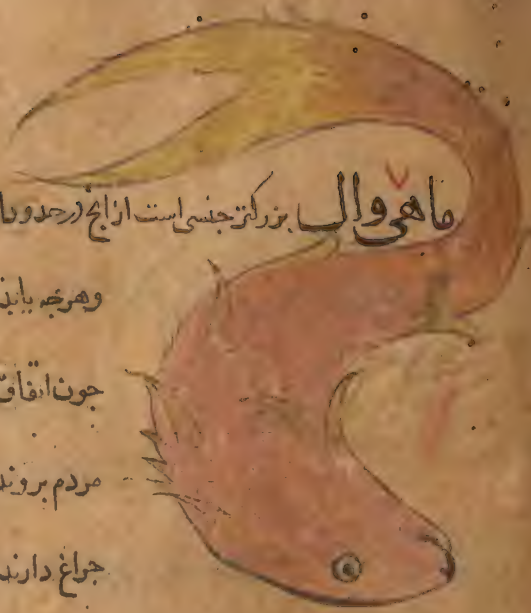 ماهی وال بزرکتر جنسی است از انج در حدود با
وهرجه یابند
جون اتفاق
مردم بروند
جراغ دارند